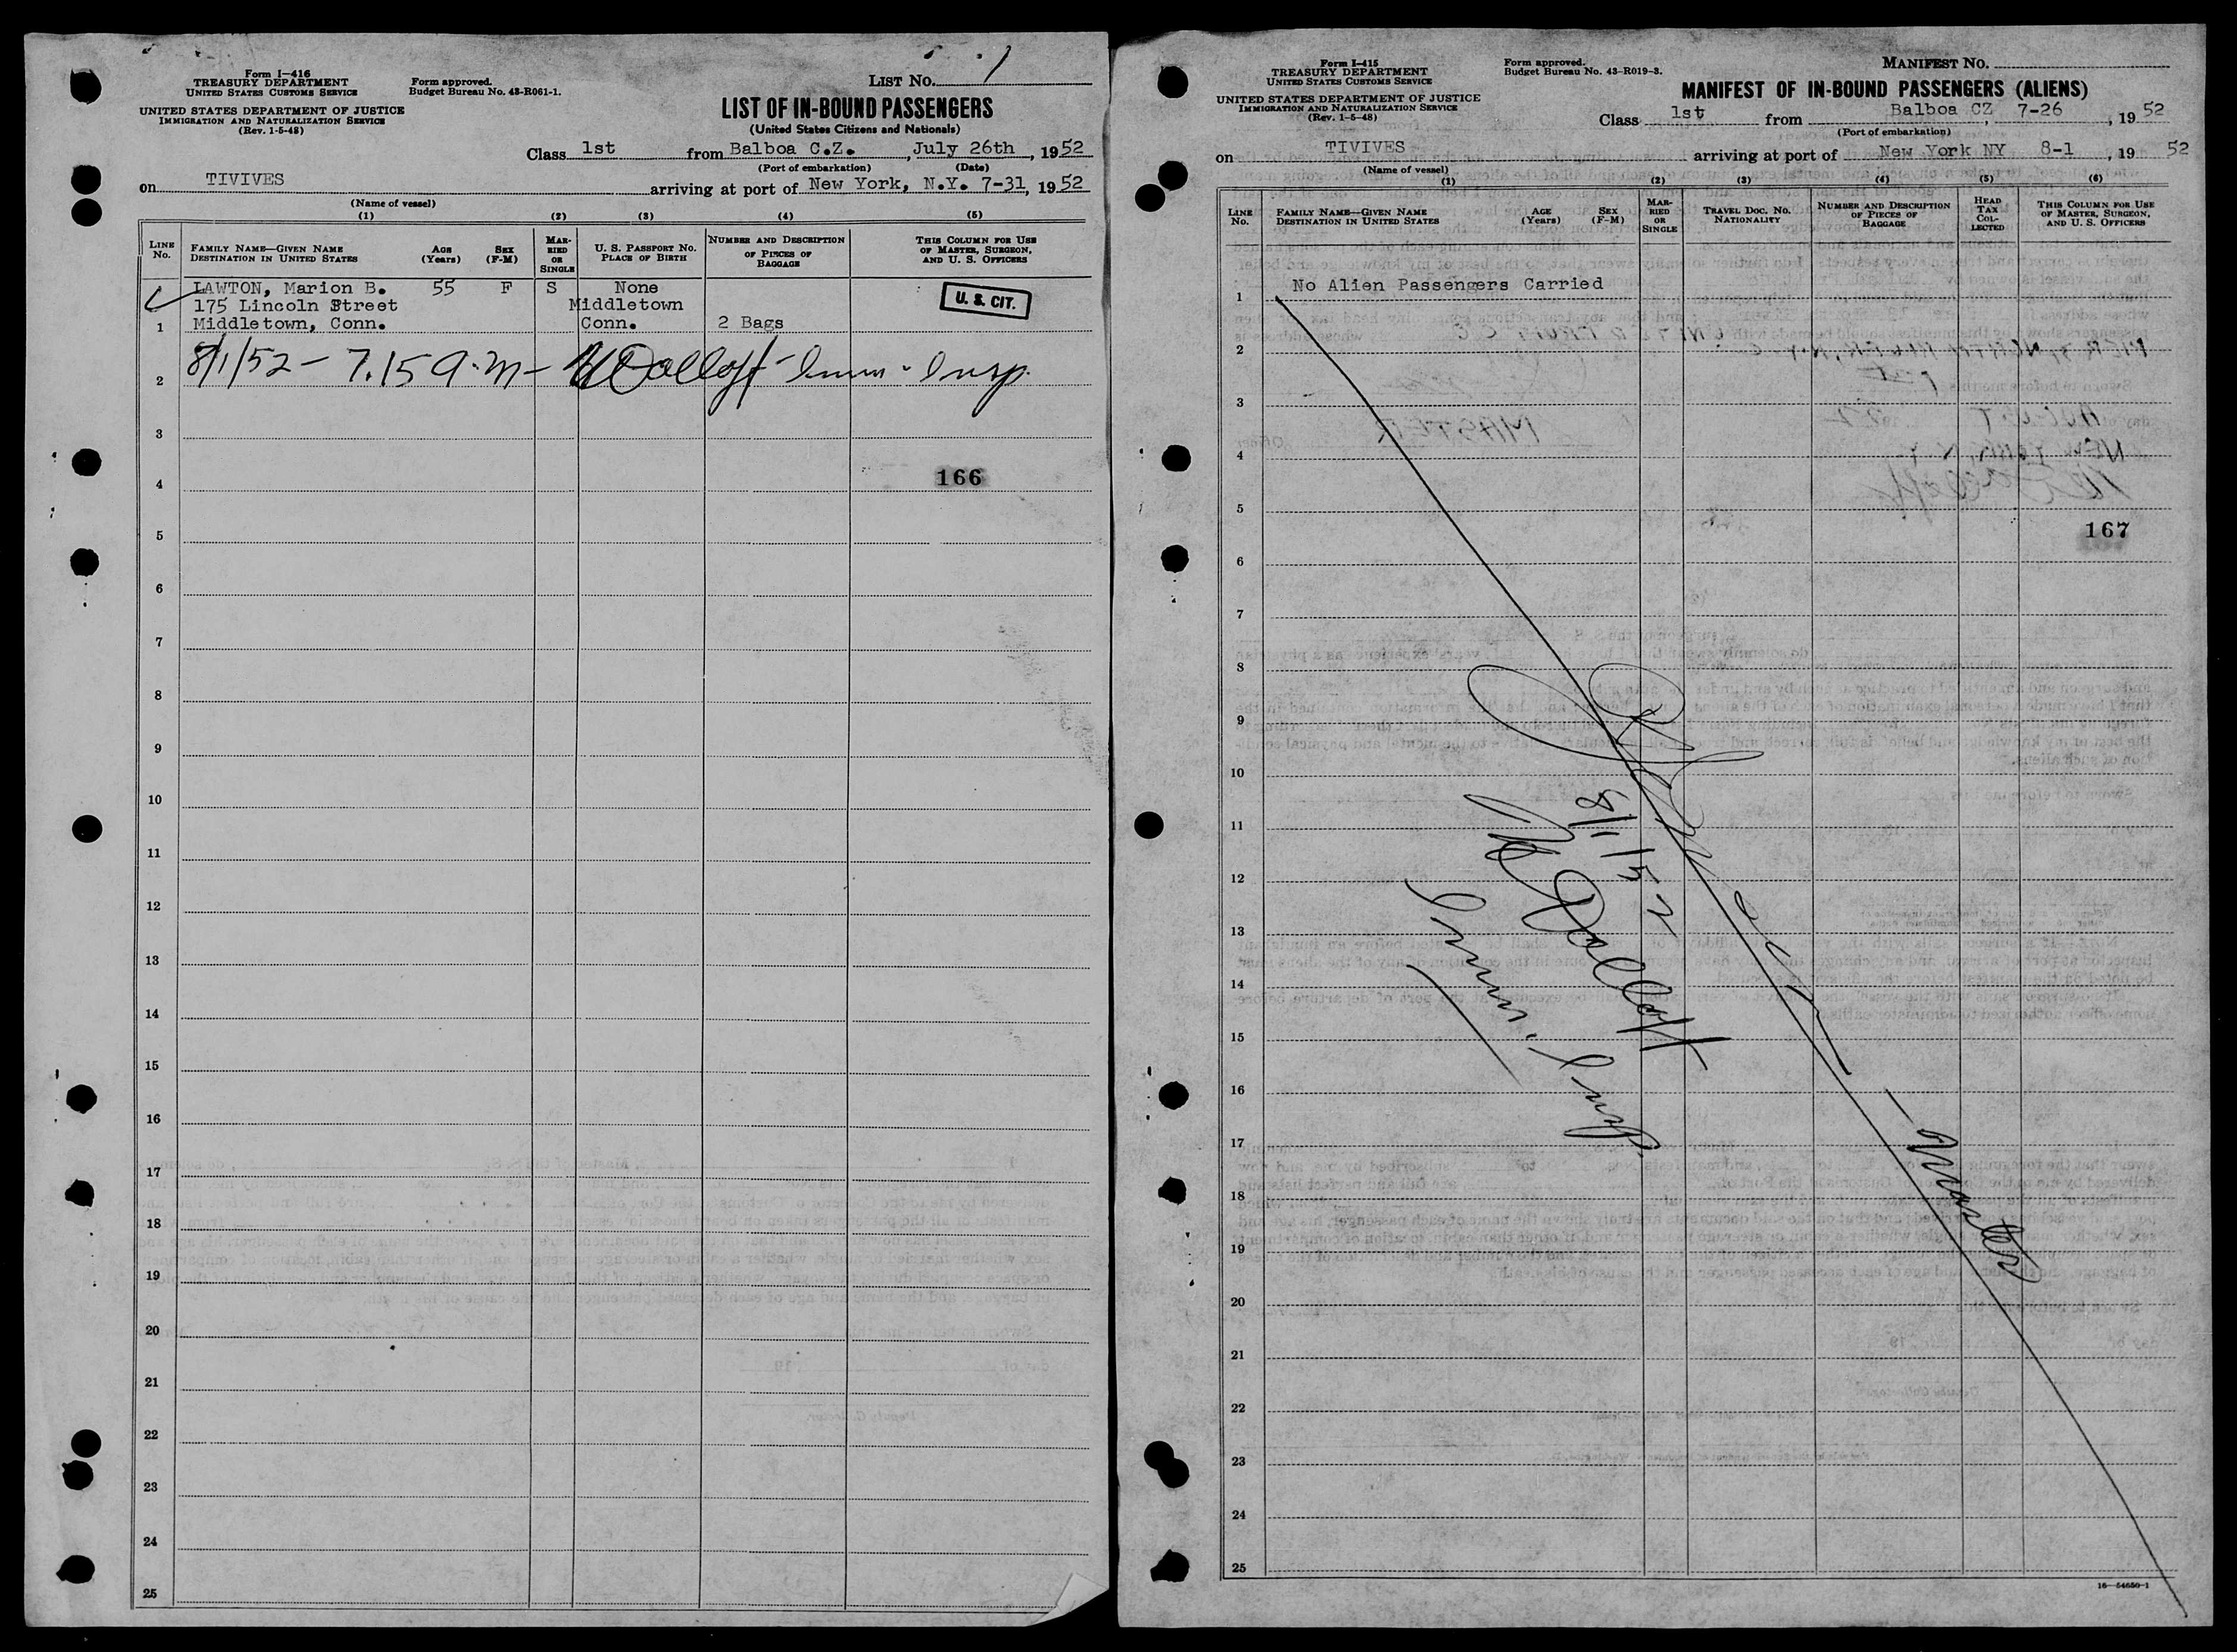 Form I-416
TREASURY DEPARTMENT
UNITED STATES CUSTOMS SERVICE
UNITED STATES DEPARTMENT OF JUSTICE
IMMIGRATION AND NATURALIZATION SERVICE
(Rev. 1-5-48)
Form approved.
Budget Bureau No. 43-R061-1.
LIST No. 1
LIST OF IN-BOUND PASSENGERS
(United States Citizens and Nationals)
Class 1st from Balboa C.Z., July 26th, 1952
(Port of embarkation) (Date)
on TIVIVES arriving at port of New York, N.Y. 7-31, 1952
(Name of vessel)
(1) (2) (3) (4) (5)
LINE No. FAMILY NAME—GIVEN NAME DESTINATION IN UNITED STATES AGE (Years) SEX (F-M) MARRIED OR SINGLE U. S. PASSPORT NO. PLACE OF BIRTH NUMBER AND DESCRIPTION OF PIECES OF BAGGAGE THIS COLUMN FOR USE OF MASTER, SURGEON, AND U. S. OFFICERS
LAWTON, Marion B. 55 F S None U. S. CIT.
175 Lincoln Street Middletown
1 Middletown, Conn. Conn. 2 Bags
8/1/52 - 7.15 a.m -
2
3
4 166
5
6
7
8
9
10
11
12
13
14
15
16
17
18
19
20
21
22
23
24
25
Form I-415
TREASURY DEPARTMENT
UNITED STATES CUSTOMS SERVICE
UNITED STATES DEPARTMENT OF JUSTICE
IMMIGRATION AND NATURALIZATION SERVICE
(Rev. 1-5-48)
Form approved.
Budget Bureau No. 43-R019-3.
MANIFEST No.
MANIFEST OF IN-BOUND PASSENGERS (ALIENS)
Class 1st from Balboa CZ, 7-26, 1952
(Port of embarkation)
on TIVIVES arriving at port of New York NY 8-1, 1952
(Name of vessel)
(1) (2) (3) (4) (5) (6)
LINE No. FAMILY NAME—GIVEN NAME DESTINATION IN UNITED STATES AGE (Years) SEX (F-M) MARRIED OR SINGLE TRAVEL DOC. NO. NATIONALITY NUMBER AND DESCRIPTION OF PIECES OF BAGGAGE HEAD TAX COLLECTED THIS COLUMN FOR USE OF MASTER, SURGEON, AND U. S. OFFICERS
1 No Alien Passengers Carried
2
3
4
5
167
6
7
8
9
10
11
12
13
14
15
16
17
18
19
20
21
22
23
24
25
8/1/52
Imm. Insp.
- Master
16—54650-1